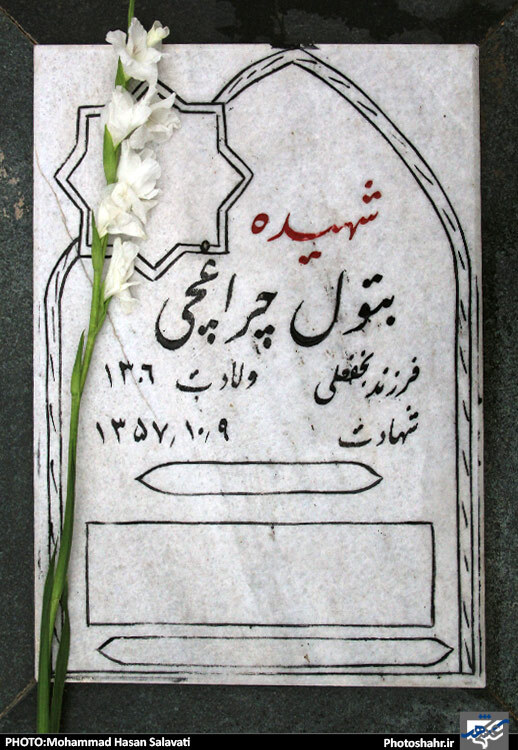 شهیده
بتول چراغچی
فرزند نجفعلی ولادت ۱۳۰۶
شهادت ۱۳۵۷,۱۰,۹
PHOTO:Mohammad Hasan Salavati
Photoshahr.ir